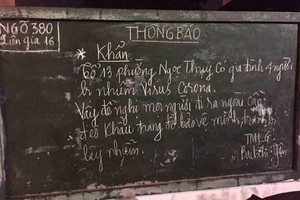 NGÕ 380
Liên gia 16
THÔNG BÁO
* Khẩn
Tổ 13 phường Ngọc Thụy Có gia đình 4 người
bị nhiễm Virus Corona.
Vậy đề nghị mọi người đi ra ngoài cần
đeo Khẩu trang để bảo vệ mình, tránh
lây nhiễm.